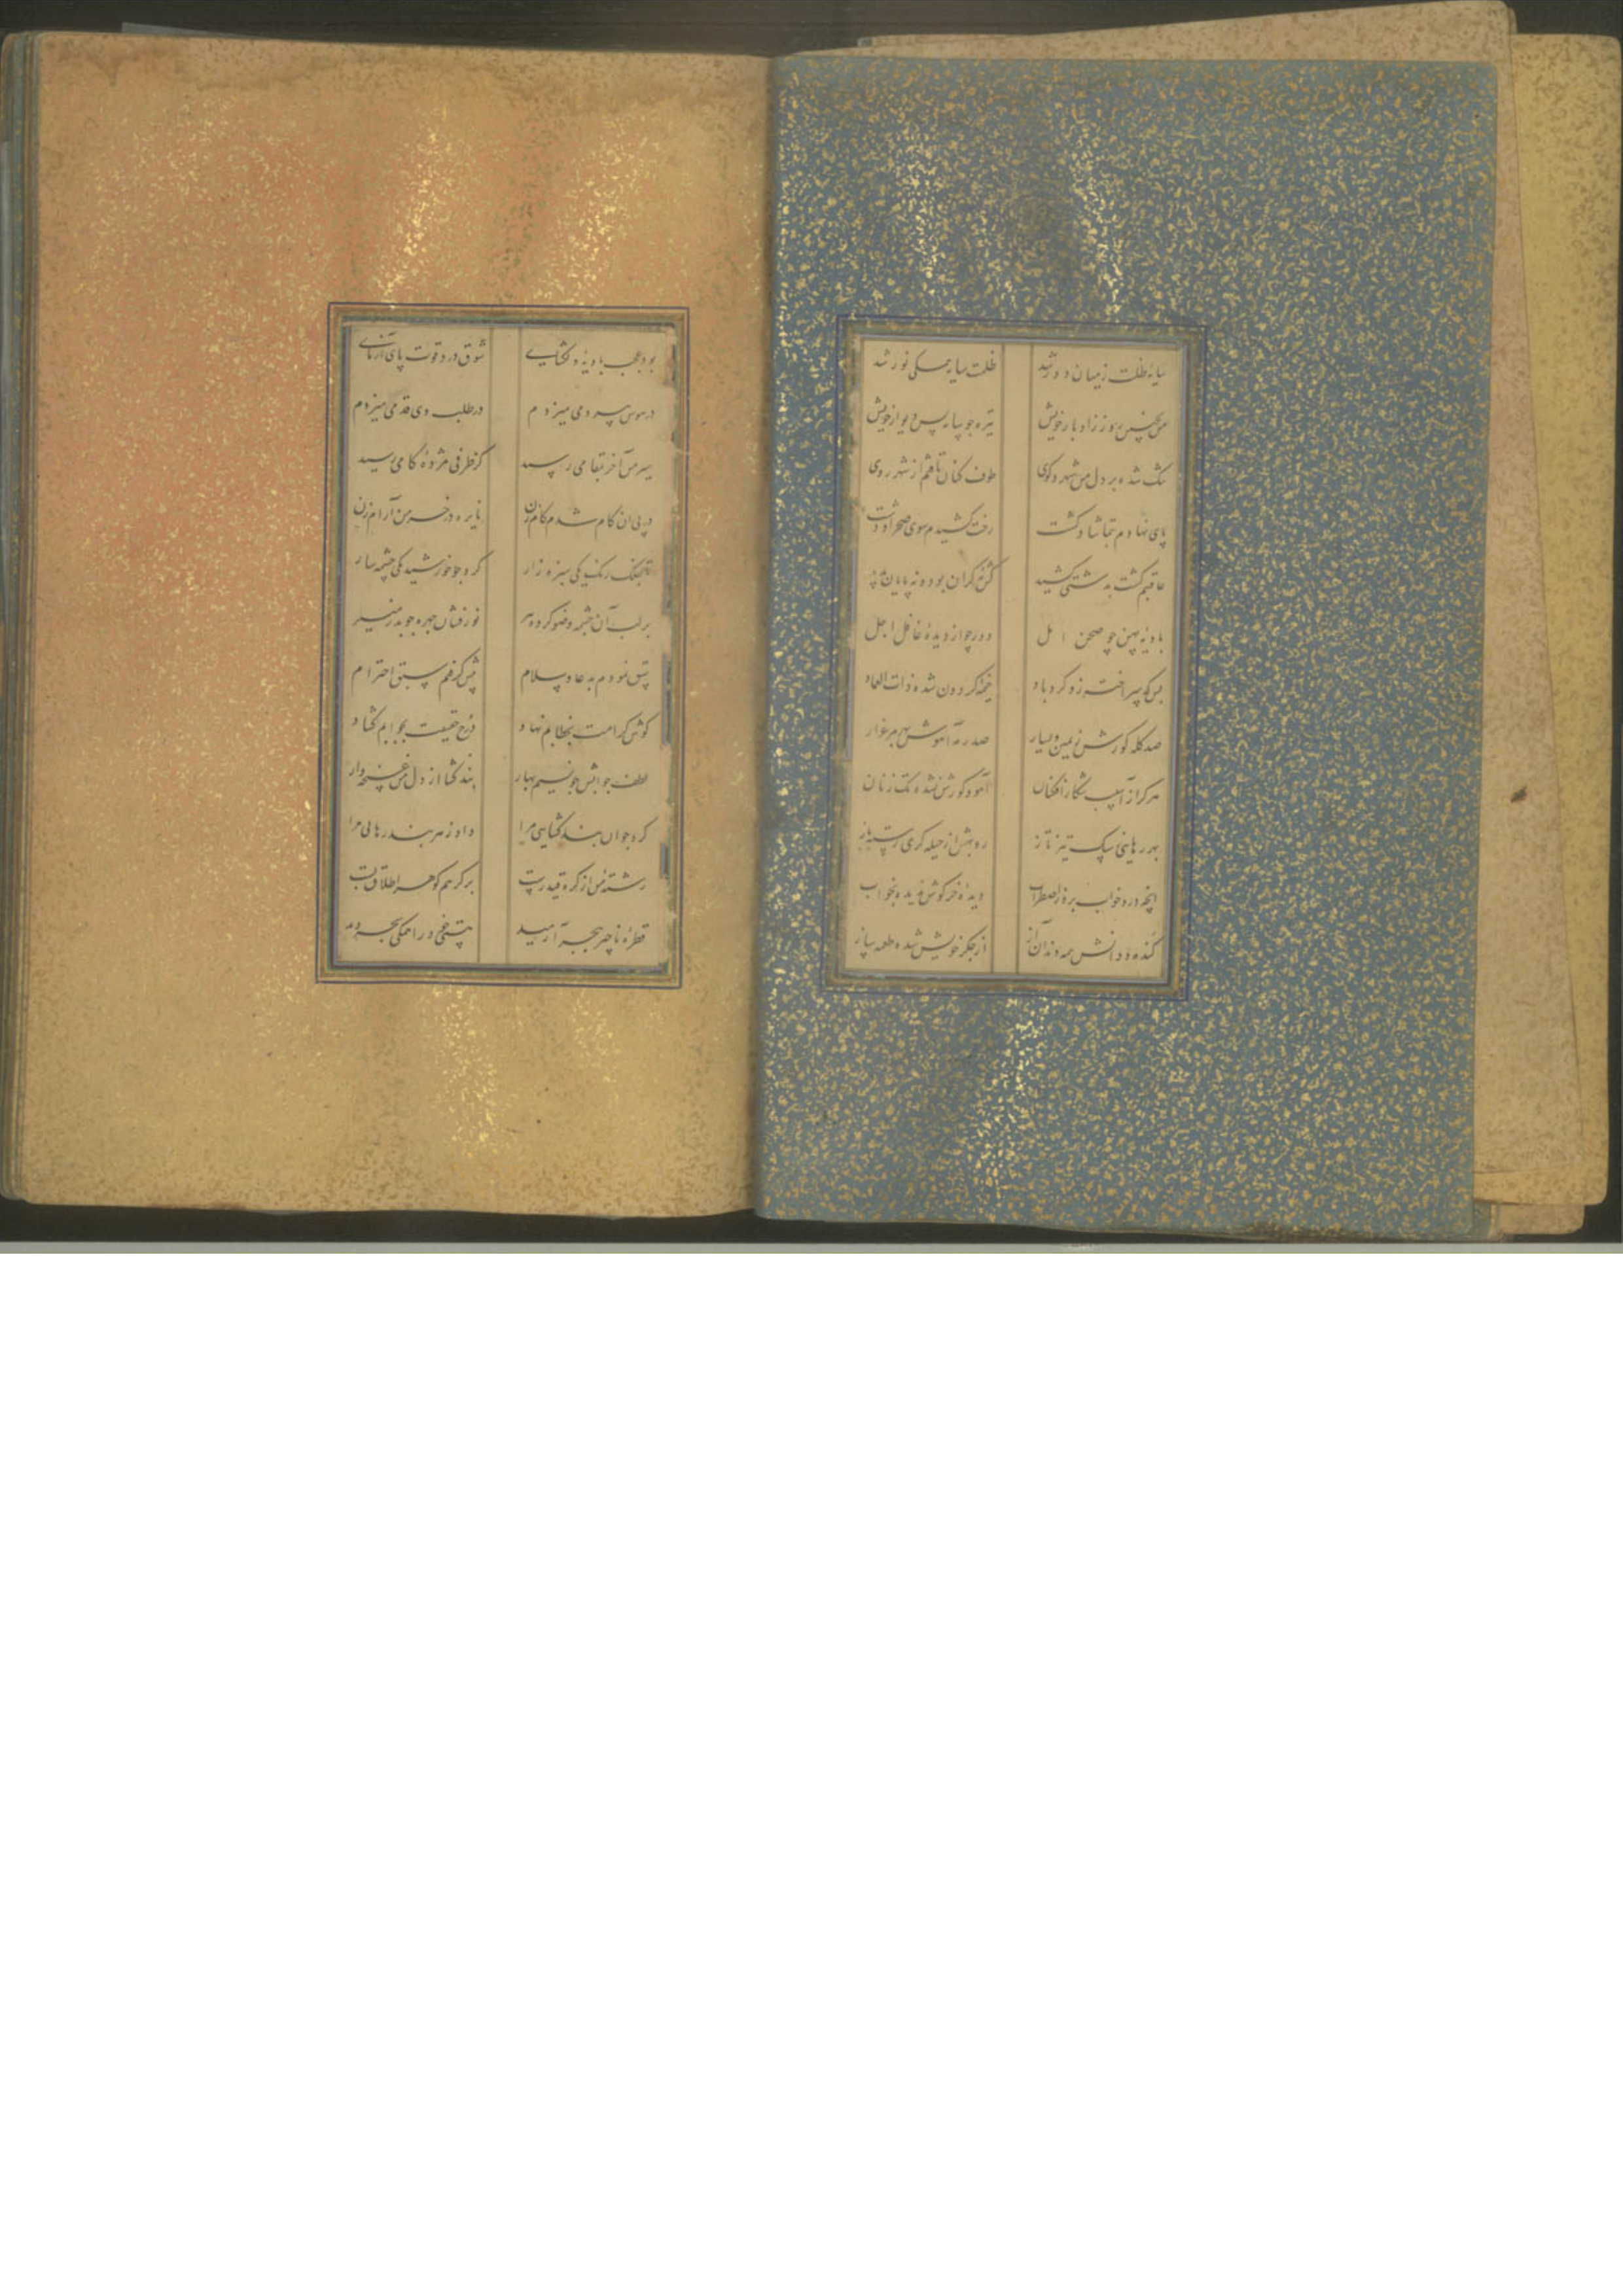 سایهٔ ظلمت ز میان دور شد ظلمت سایه همکی نور شد
من روز ز ادبار خویش تیره چو سایه پس دیوار خویش
تنک شده بر دل من شهر و کوی طوف کنان تافتم از شهر روی
پای نهادم بتماشا و کشت رخت کشیدم سوی صحرا و دشت
عاقبتم کشت بدشتی کشید کش نه کران بود و نه پایان پدید
بادیهٔ پهن چو صحن امل دور چو از دیدهٔ غافل اجل
بس که سر افراخته زو کردباد خیمهٔ کردون شده ذات العماد
صد کله کورش ز یمین و یسار صد رمه آهوش بهر مرغزار
هرکز از آسیب شکار افکنان آهو و کورش نشده تک زنان
بهر رهایی ز سک تیز تاز روبهش از حیله کری رسته باز
آنچه درو خواب برد ز اضطراب دیدهٔ خرکوش ندیده بخواب
کنده ددانش همه دندان آز از جکر خویش شده طعمه ساز
بود عجب بادیهٔ دلکشای شوق درو قوت پای آزمای
در هوس دمی میزدم در طلب وی قدمی میزدم
سیر من آخر بمقامی رسید کز طرفی مژدهٔ کامی رسید
در پی آن کام شدم کام زن نایره در خرمن آرام زن
یکی سبزه زار کرد چو خورشید یکی چشمه سار
بر لب آن چشمه وضو کرده پیر نورفشان چهره چو بدر منیر
پیش نمودم بدعا و سلام پیش کرفتم سبق احترام
کوش کرامت بخطابم نهاد درج حقیقت بجوابم کشاد
لطف جوابش چو نسیم بهار بند کشا از دل من غنچه وار
کرد چو آن بند کشایی مرا داد ز هر بند رهایی مرا
رشتهٔ من از کره قید رست بر کرهم کوهر اطلاق بست
قطرهٔ ناچیز ببحر آرمید هستی خود را همکی بحر دید